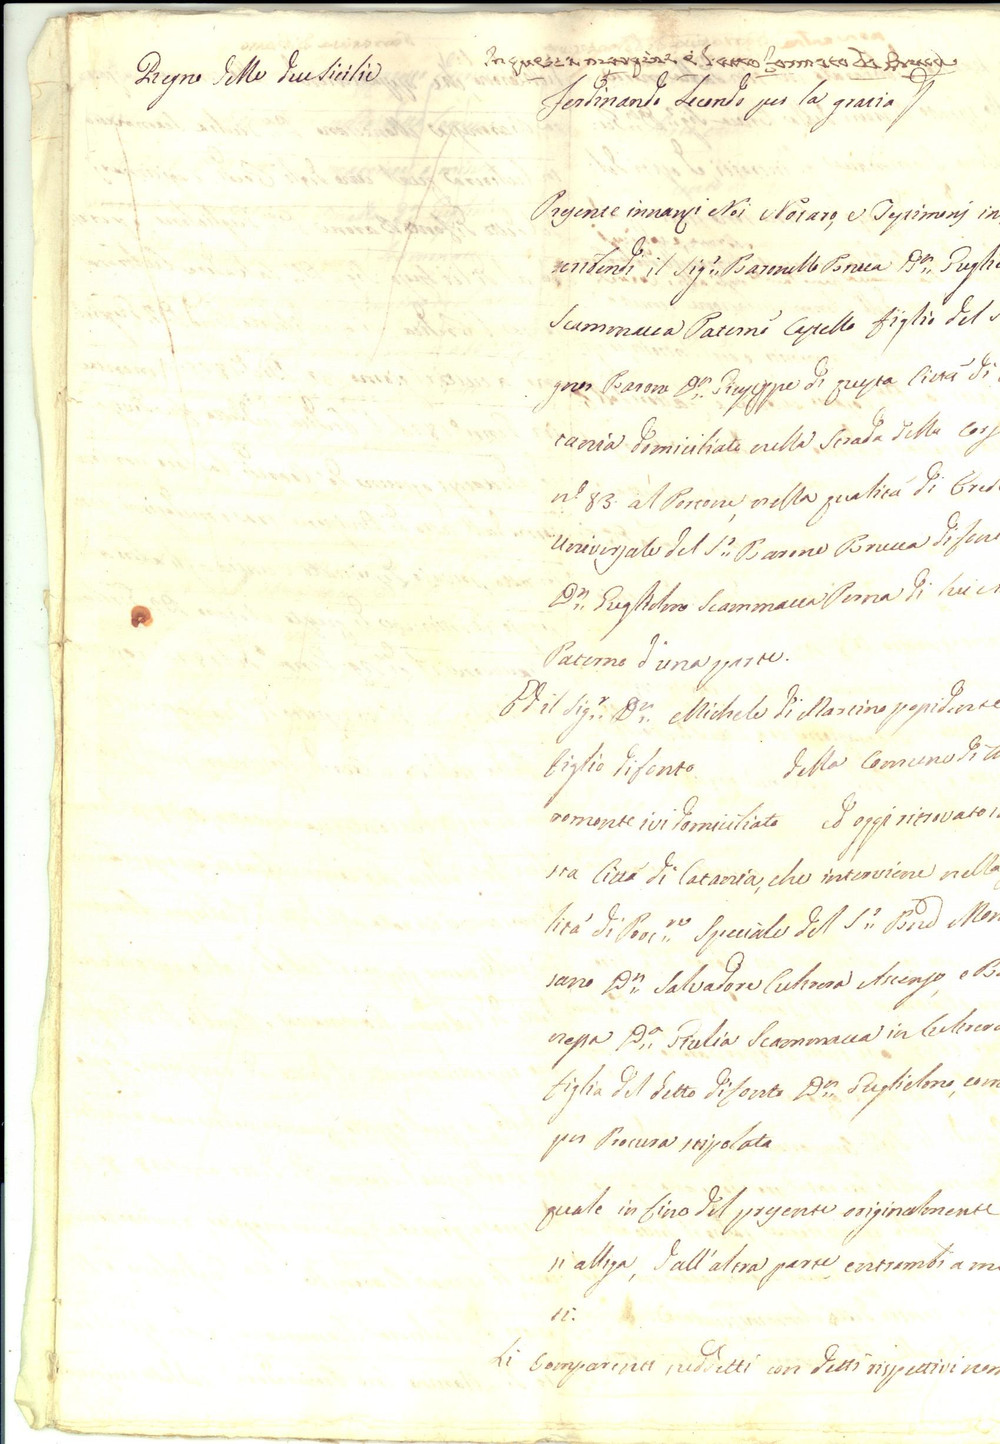 Regno delle due Sicilie
In questa margine è
Ferdinando Secondo per la grazia
Presente innanzi Noi Notaro, e Testimonj in
scribendi il Sig.r Baronello Bruca D.n Guglie
Scammacca Paternò Castello figlio del S
gnor Barone D.n Giuseppe di questa Città di
tania domiciliato nella Strada della Cors
n.o 83. al Portone, nella qualità di Ered
Universale del S.r Barone Bruca difon
D.n Guglielmo Scammacca Perna di lui
Paterno d'una parte.
Ed il Sig.r D.n Michele di Martino possidente
figlio difonto della Comune di
ivi domiciliato ed oggi ritrovato
sta Città di Catania, che interviene nella
lità di Proc.re Speciale del S.r
D.n Salvadore Cultrera Ascenso, e Ba
nessa D.a Giulia Scammacca in Cultrera
figlia del detto difonto D.n Guglielmo, com
per Procura stipolata
quale in fine del presente originalmente
si alliga, dall'altra parte, entrambi a me
ti.
Li Comparenti suddetti con detti rispettivi nom